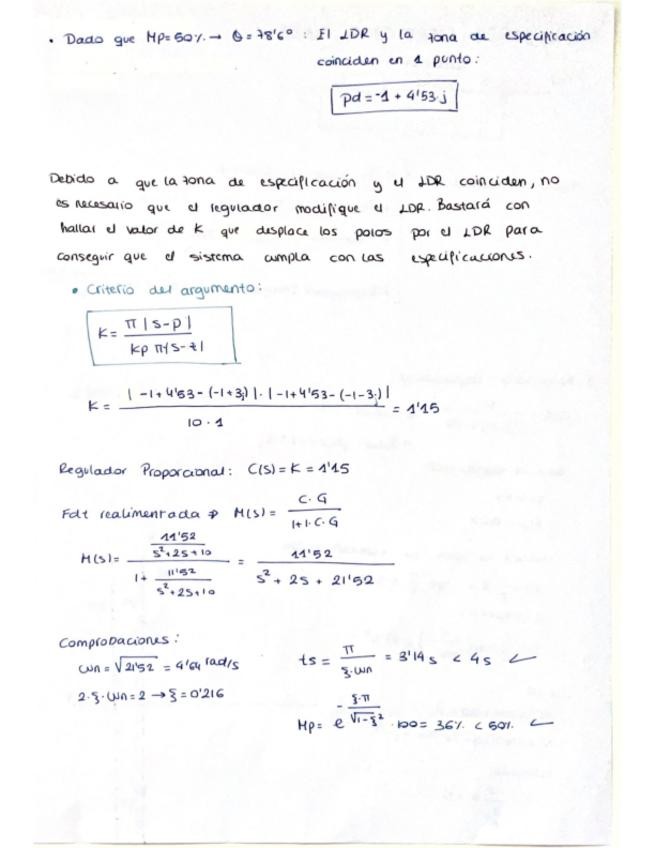 • Dado que Mp=50% → θ=78'6° : El LDR y la zona de especificación
coinciden en 1 punto:
pd = -1 + 4'53 j
Debido a que la zona de especificación y el LDR coinciden, no
es necesario que el regulador modifique el LDR. Bastará con
hallar el valor de K que desplace los polos por el LDR para
conseguir que el sistema cumpla con las especificaciones.
• Criterio del argumento:
K = π |s-p| / kp π|s-z|
K = | -1 + 4'53 - (-1+3j) | · | -1 + 4'53 - (-1-3j) | / 10 · 1 = 1'15
Regulador Proporcional: C(s) = K = 1'15
Fdt realimentada → M(s) = C·G / 1+1·C·G
M(s) = 11'52 / s²+2s+10 / 1 + 11'52 / s²+2s+10 = 11'52 / s² + 2s + 21'52
Comprobaciones:
ωn = √21'52 = 4'64 rad/s
ts = π / ξ·ωn = 3'14 s < 4s ✓
2·ξ·ωn = 2 → ξ = 0'216
Mp = e^(-ξ·π / √1-ξ²) · 100 = 36% < 50% ✓